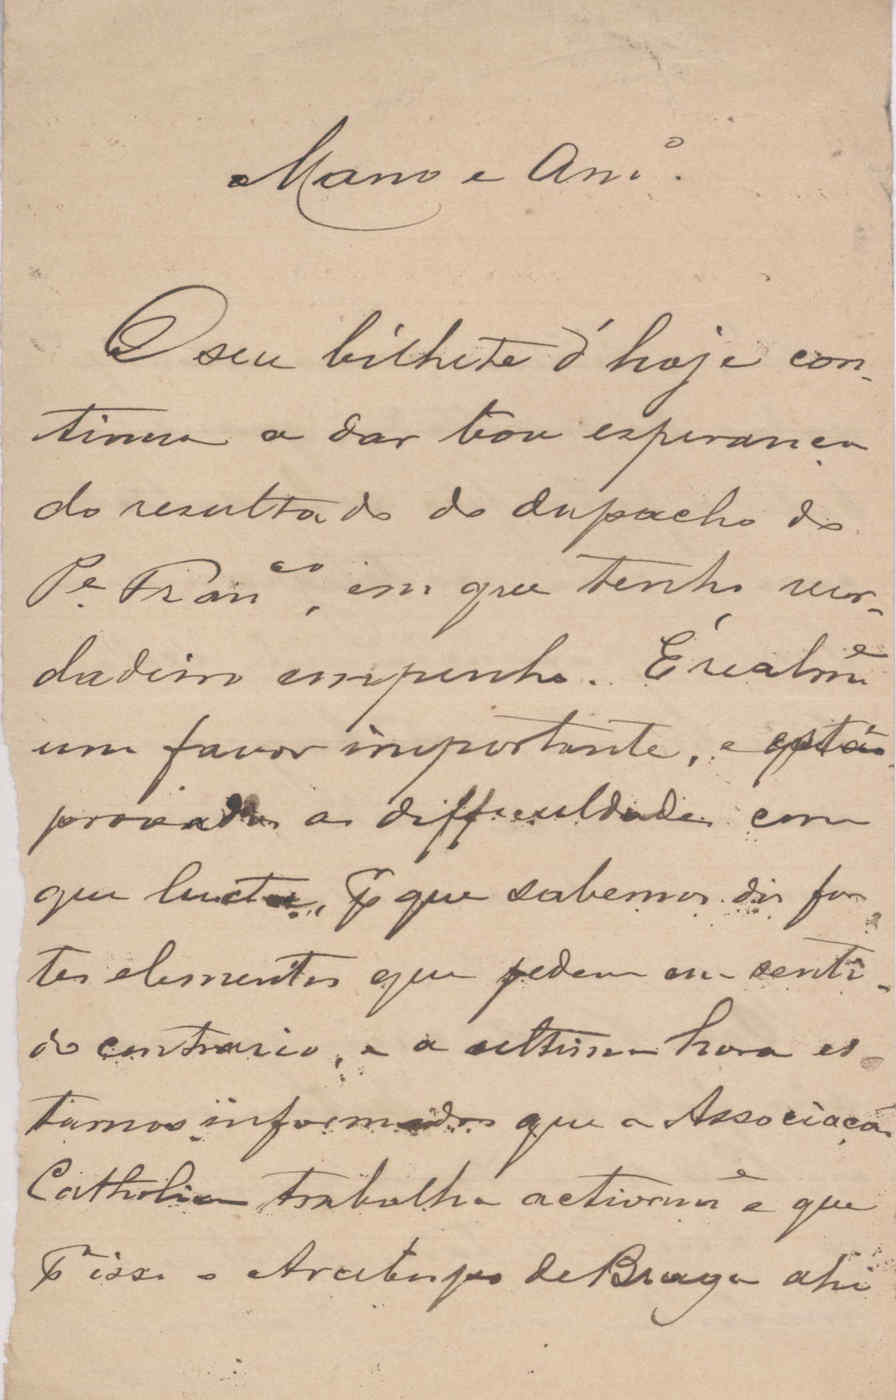 Mano e Am.º
O seu bilhete d'hoje con-
tinua a dar boa esperança
do resultado do despacho do
P.e Fran.co, em que tenho ver-
dadeiro empenho. É realm.e
um favor importante, e estão
provadas as difficuldades com
que lucta, p.r que sabemos dos for-
tes elementos que pedem em senti-
do contrario, e a ultima hora es-
tamos informados que a Associação
Catholica trabalha activam.e e que
p.r isso o Arcebispo de Braga ahi